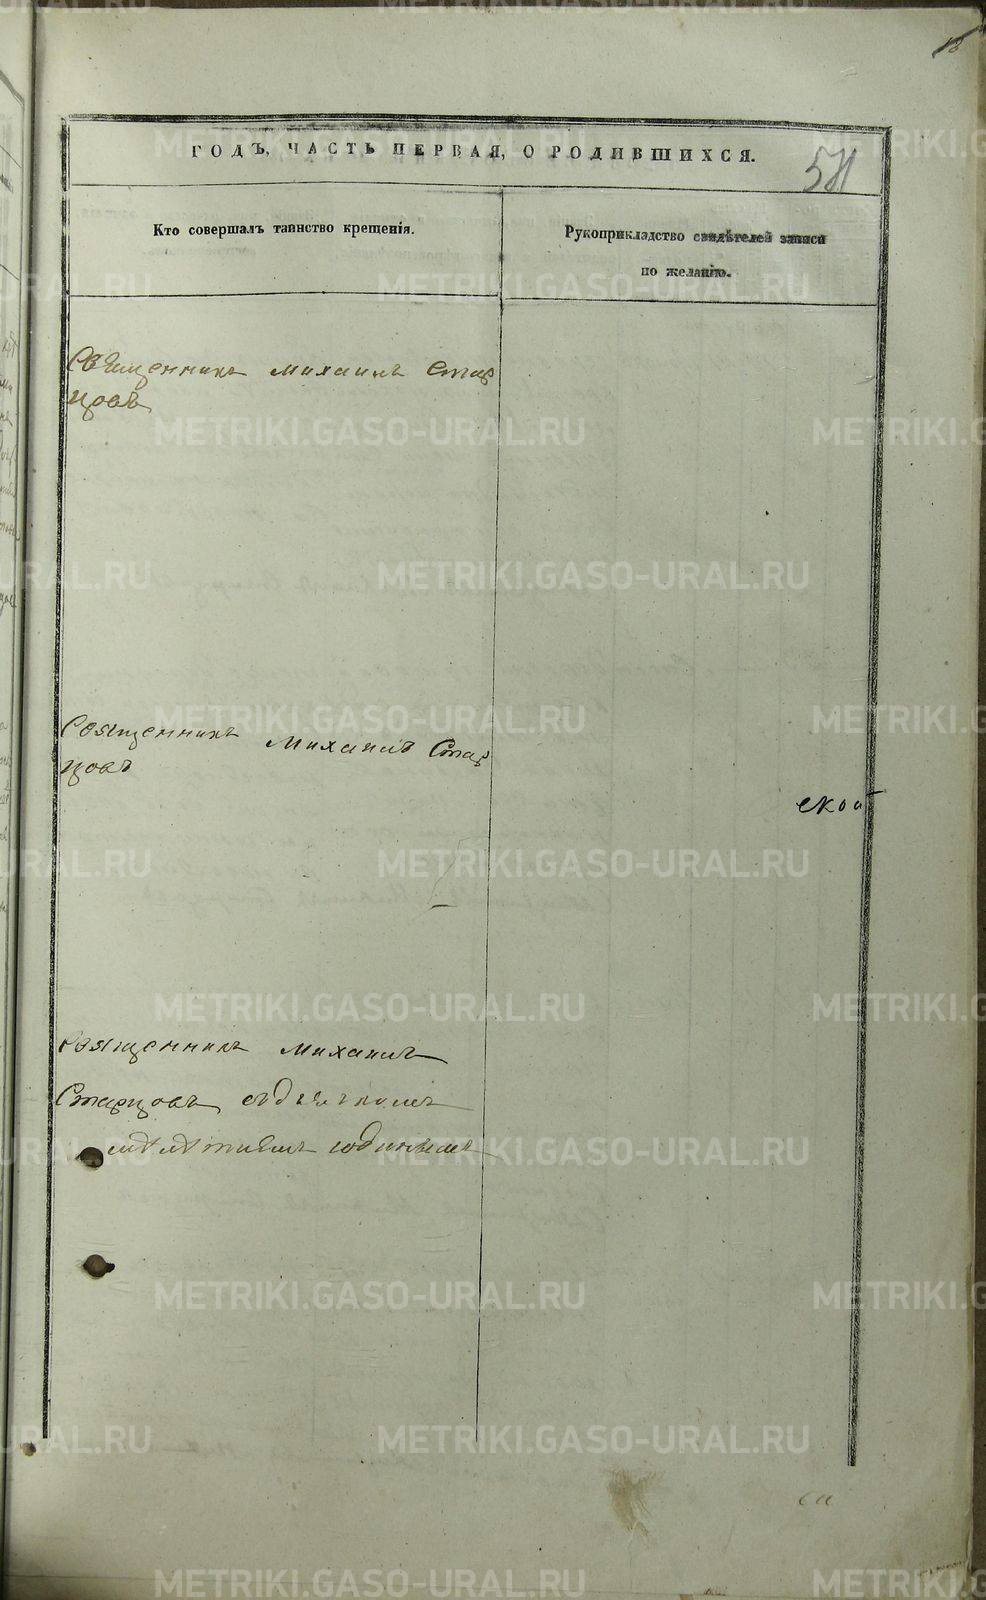 18
ГОДЪ, ЧАСТЬ ПЕРВАЯ, О РОДИВШИХСЯ.
571
Кто совершалъ таинство крещенія.
Рукоприкладство свидѣтелей записи
по желанію.
Священникъ Михаилъ Стар
цовъ
Священникъ Михаилъ Стар
цовъ
ской
Священникъ Михаилъ
Старцовъ съ дьячкомъ
METRIKI.GASO-URAL.RU